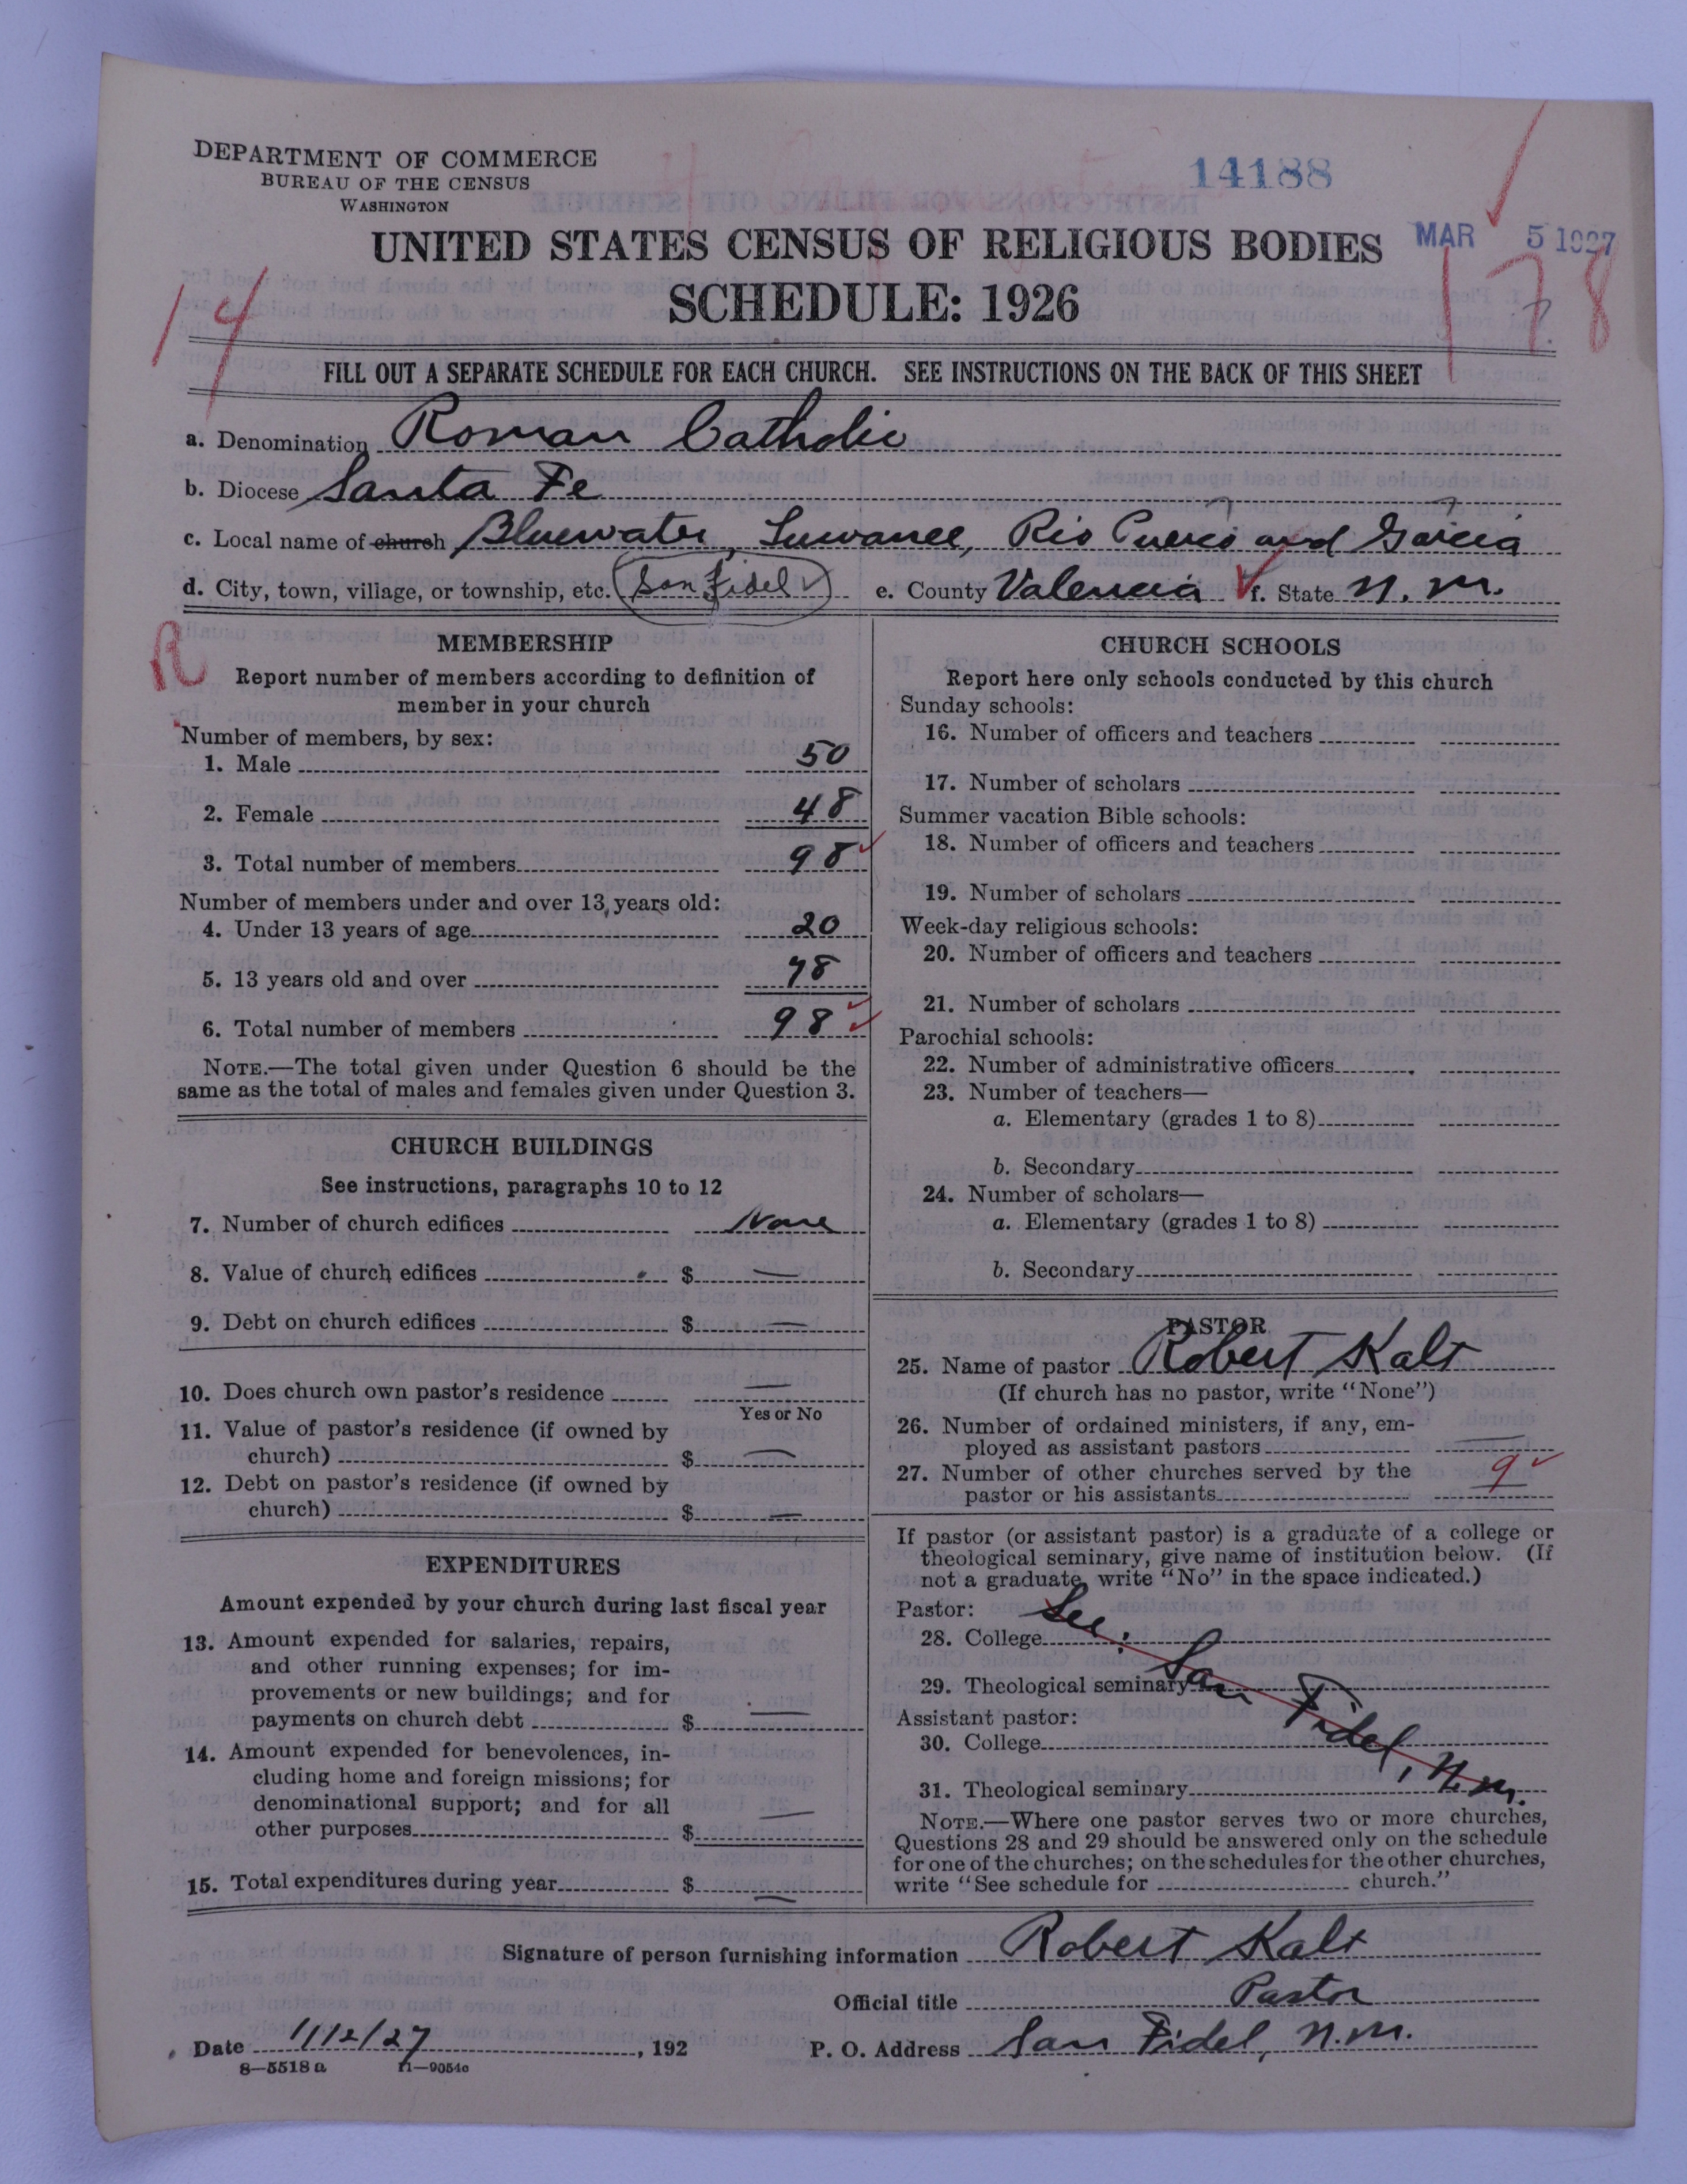 DEPARTMENT OF COMMERCE
BUREAU OF THE CENSUS
WASHINGTON
14188
UNITED STATES CENSUS OF RELIGIOUS BODIES
MAR 5 1927
SCHEDULE: 1926
14
178
FILL OUT A SEPARATE SCHEDULE FOR EACH CHURCH. SEE INSTRUCTIONS ON THE BACK OF THIS SHEET
a. Denomination Roman Catholic
b. Diocese Santa Fe
c. Local name of church Bluewater, Suwanee, Rio Puerco and Garcia
d. City, town, village, or township, etc. San Fidel e. County Valencia f. State N. M.
R
MEMBERSHIP
Report number of members according to definition of
member in your church
Number of members, by sex:
1. Male 50
2. Female 48
3. Total number of members 98
Number of members under and over 13 years old:
4. Under 13 years of age 20
5. 13 years old and over 78
6. Total number of members 98
NOTE.—The total given under Question 6 should be the
same as the total of males and females given under Question 3.
CHURCH BUILDINGS
See instructions, paragraphs 10 to 12
7. Number of church edifices None
8. Value of church edifices $ —
9. Debt on church edifices $ —
10. Does church own pastor's residence —
Yes or No
11. Value of pastor's residence (if owned by
church) $ —
12. Debt on pastor's residence (if owned by
church) $ —
EXPENDITURES
Amount expended by your church during last fiscal year
13. Amount expended for salaries, repairs,
and other running expenses; for im-
provements or new buildings; and for
payments on church debt $ —
14. Amount expended for benevolences, in-
cluding home and foreign missions; for
denominational support; and for all
other purposes $ —
15. Total expenditures during year $ —
CHURCH SCHOOLS
Report here only schools conducted by this church
Sunday schools:
16. Number of officers and teachers
17. Number of scholars
Summer vacation Bible schools:
18. Number of officers and teachers
19. Number of scholars
Week-day religious schools:
20. Number of officers and teachers
21. Number of scholars
Parochial schools:
22. Number of administrative officers
23. Number of teachers—
a. Elementary (grades 1 to 8)
b. Secondary
24. Number of scholars—
a. Elementary (grades 1 to 8)
b. Secondary
PASTOR
25. Name of pastor Robert Kalt
(If church has no pastor, write "None")
26. Number of ordained ministers, if any, em-
ployed as assistant pastors —
27. Number of other churches served by the
pastor or his assistants 9
If pastor (or assistant pastor) is a graduate of a college or
theological seminary, give name of institution below. (If
not a graduate, write "No" in the space indicated.)
Pastor: See:
28. College
29. Theological seminary San Fidel, N.M.
Assistant pastor:
30. College
31. Theological seminary
NOTE.—Where one pastor serves two or more churches,
Questions 28 and 29 should be answered only on the schedule
for one of the churches; on the schedules for the other churches,
write "See schedule for church."
Signature of person furnishing information Robert Kalt
Official title Pastor
Date 1/12/27, 192 P. O. Address San Fidel, N.M.
8—5518 a 11—9054c